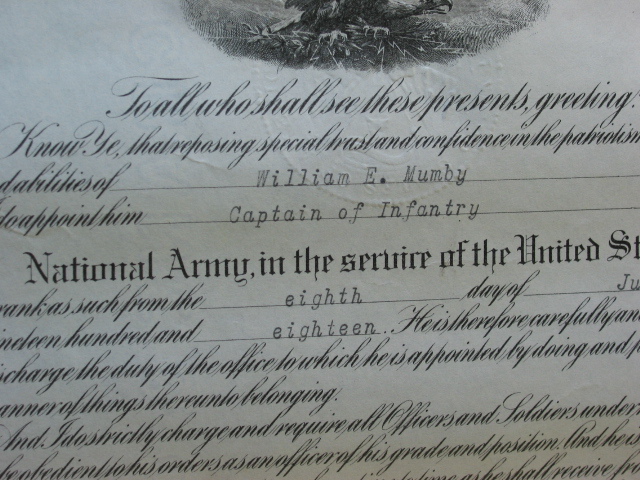 To all who shall see these presents, greeting:
Know Ye, that reposing special trust and confidence in the patriotism
abilities of William E. Mumby
do appoint him Captain of Infantry
National Army, in the service of the United St
rank as such from the eighth day of Ju
nineteen hundred and eighteen.. He is therefore carefully and
scharge the duty of the office to which he is appointed by doing and p
anner of things thereunto belonging.
And, I do strictly charge and require all Officers and Soldiers under
be obedient to his orders as an officer of his grade and position. And he is
to time as he shall receive from